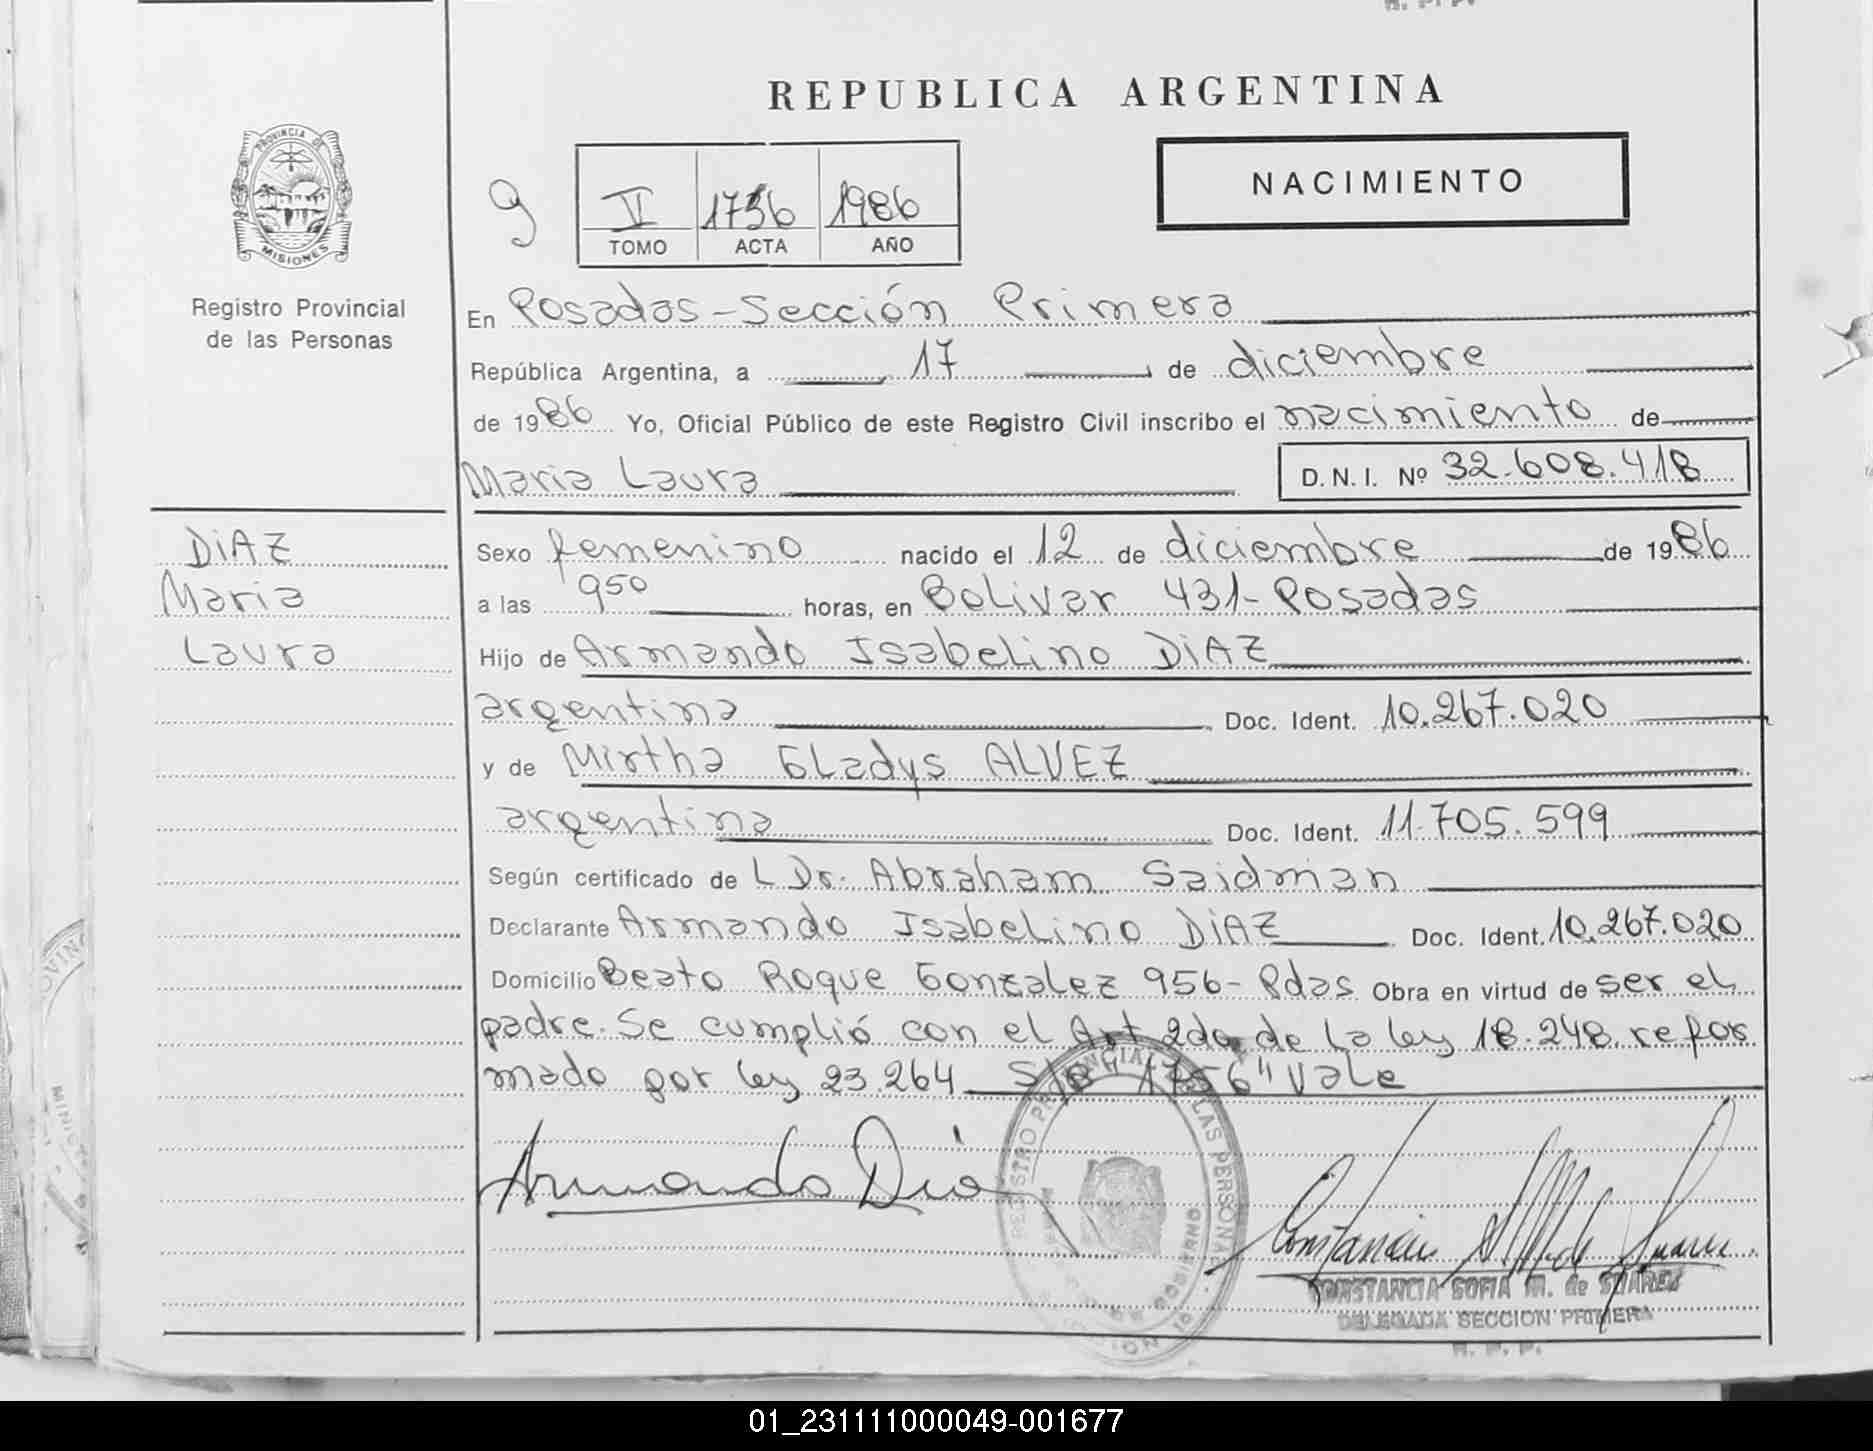 REPUBLICA ARGENTINA
PROVINCIA DE
MISIONES
NACIMIENTO
9
V 1756 1986
TOMO ACTA AÑO
Registro Provincial
de las Personas
En Posadas-Sección Primera
República Argentina, a 17 de diciembre
de 1986 Yo, Oficial Público de este Registro Civil inscribo el nacimiento de
Maria Laura D.N.I. Nº 32.608.418
DiAZ
Maria
Laura
Sexo femenino nacido el 12 de diciembre de 1986
a las 950 horas, en Bolivar 431-Posadas
Hijo de Armando Isabelino DiAZ
argentina Doc. Ident. 10.267.020
y de Mirtha Gladys ALVEZ
argentina Doc. Ident. 11.705.599
Según certificado de L Dr. Abraham Saidman
Declarante Armando Isabelino DiAZ Doc. Ident. 10.267.020
Domicilio Beato Roque Gonzalez 956-Pdas Obra en virtud de ser el
padre. Se cumplió con el Art 2do de la ley 18.248 refor
mado por ley 23.264 S/B "1756" Vale
Armando Dia
REGISTRO PROVINCIAL DE LAS PERSONAS
CONSTANCIA SOFIA M. de SUAREZ
DELEGADA SECCION PRIMERA
R. P. P.
01_231111000049-001677